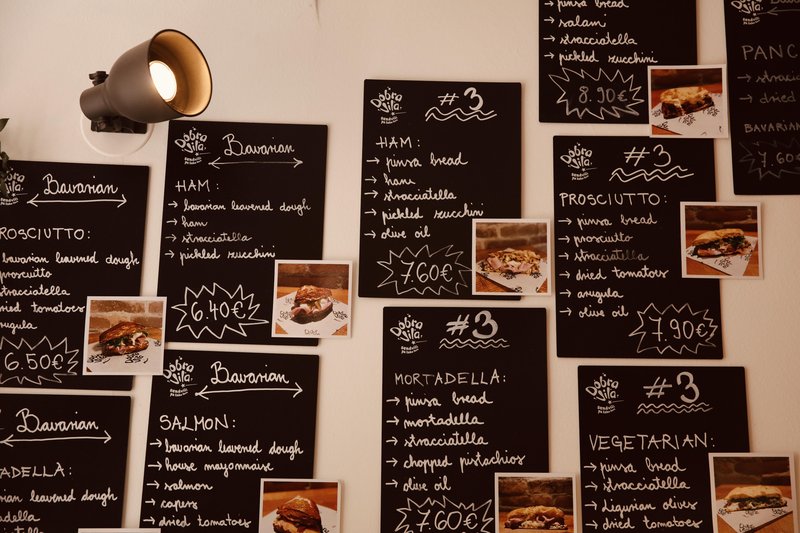 Bavarian
ROSCIUTTO:
bavarian leavened dough
prosciutto
stracciatella
dried tomatoes
arugula
6.50€
Bavarian
TADELLA:
bavarian leavened dough
mortadella
stracciatella
Dobra Vita.
Bavarian
HAM:
→ bavarian leavened dough
→ ham
→ stracciatella
→ pickled zucchini
6.40€
Dobra Vita.
Bavarian
SALMON:
→ bavarian leavened dough
→ house mayonnaise
→ salmon
→ capers
→ dried tomatoes
Dobra Vita.
#3
HAM:
→ pinsa bread
→ ham
→ stracciatella
→ pickled zucchini
→ olive oil
7.60€
Dobra Vita.
#3
MORTADELLA:
→ pinsa bread
→ mortadella
→ stracciatella
→ chopped pistachios
→ olive oil
7.60€
→ pinsa bread
→ salami
→ stracciatella
→ pickled zucchini
8.90€
Dobra Vita.
#3
PROSCIUTTO:
→ pinsa bread
→ prosciutto
→ stracciatella
→ dried tomatoes
→ arugula
→ olive oil
7.90€
Dobra Vita.
#3
VEGETARIAN:
→ pinsa bread
→ stracciatella
→ Ligurian olives
→ dried tomatoes
PANC
→ stracci
→ dried
BAVARIAN
7.60€